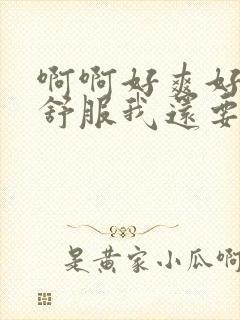 啊啊好爽好
舒服我還要
是黄家小瓜啊